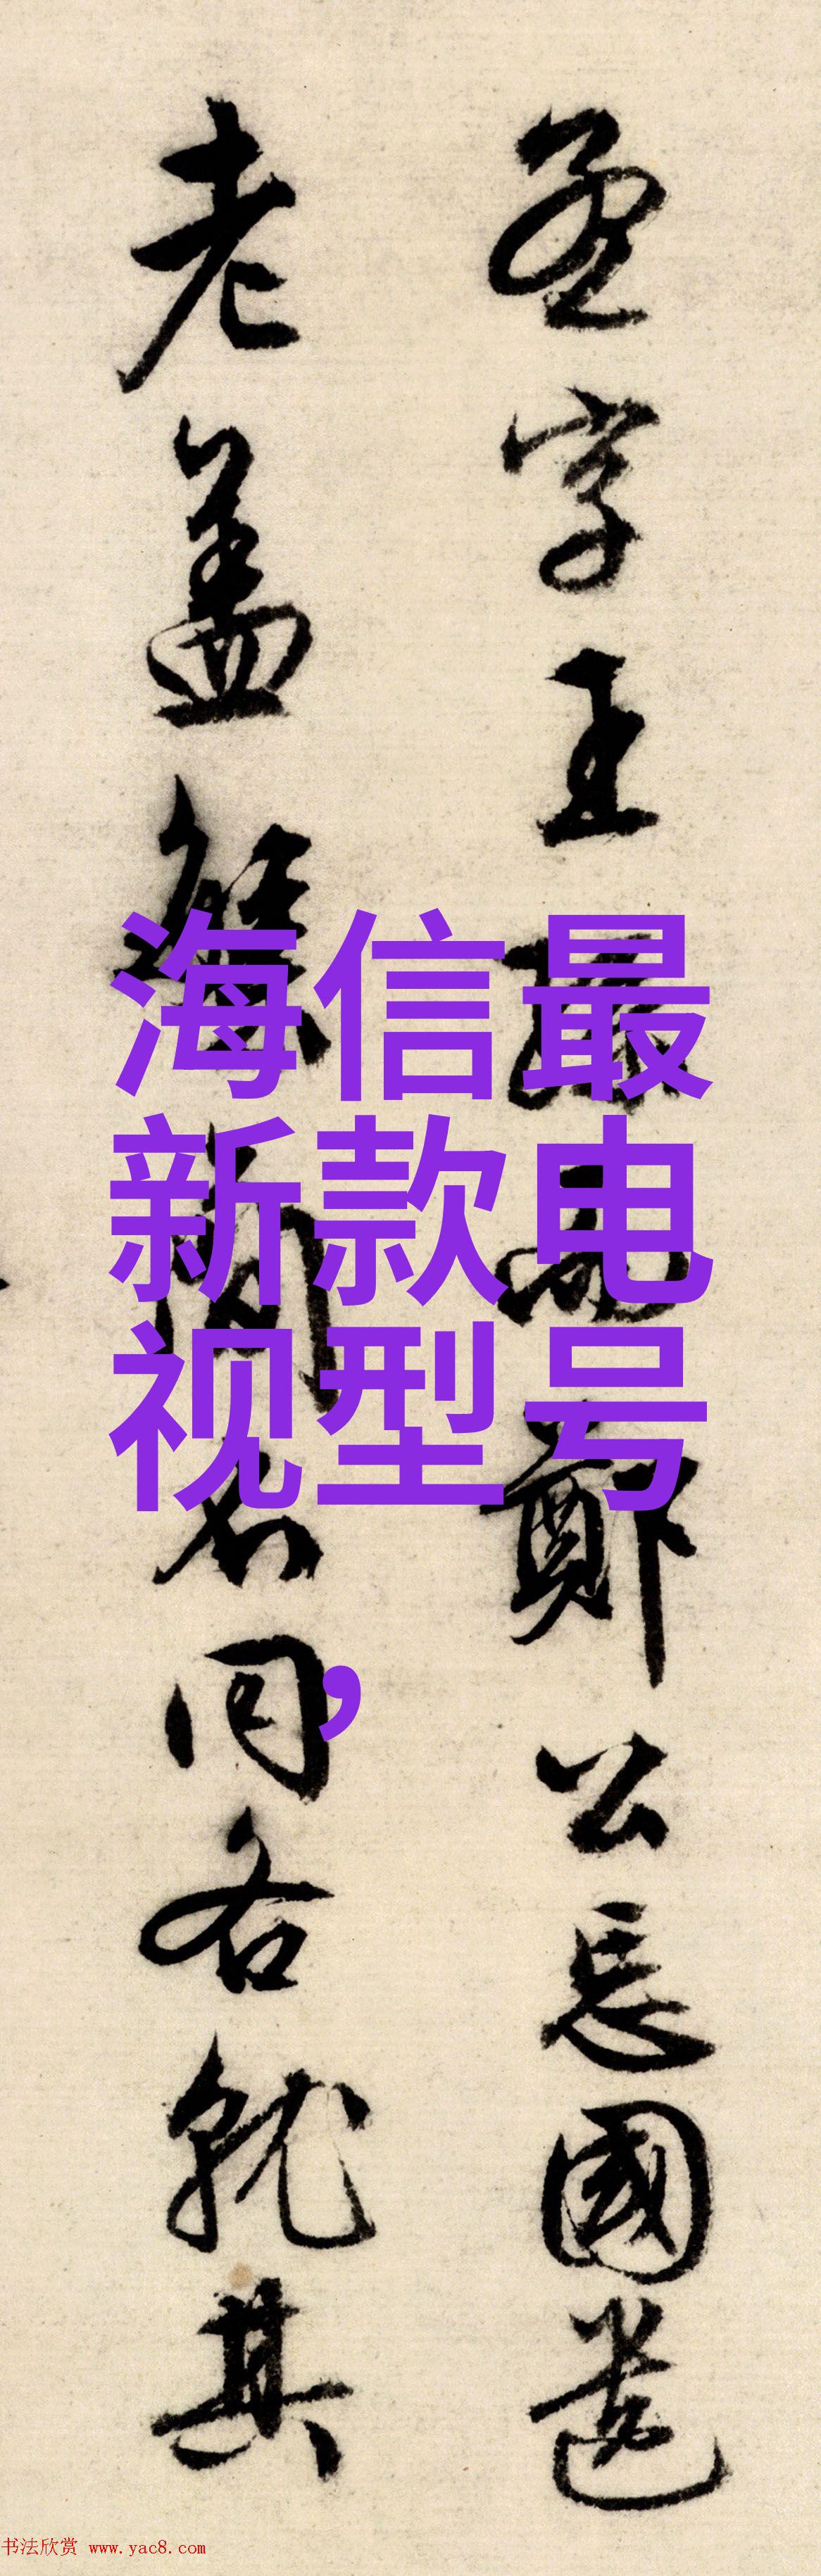 海信最
新款电
视型号
，
孟字王
鄭公忘國遺
老蓋
名同各就其
书法欣赏 www.yac8.com